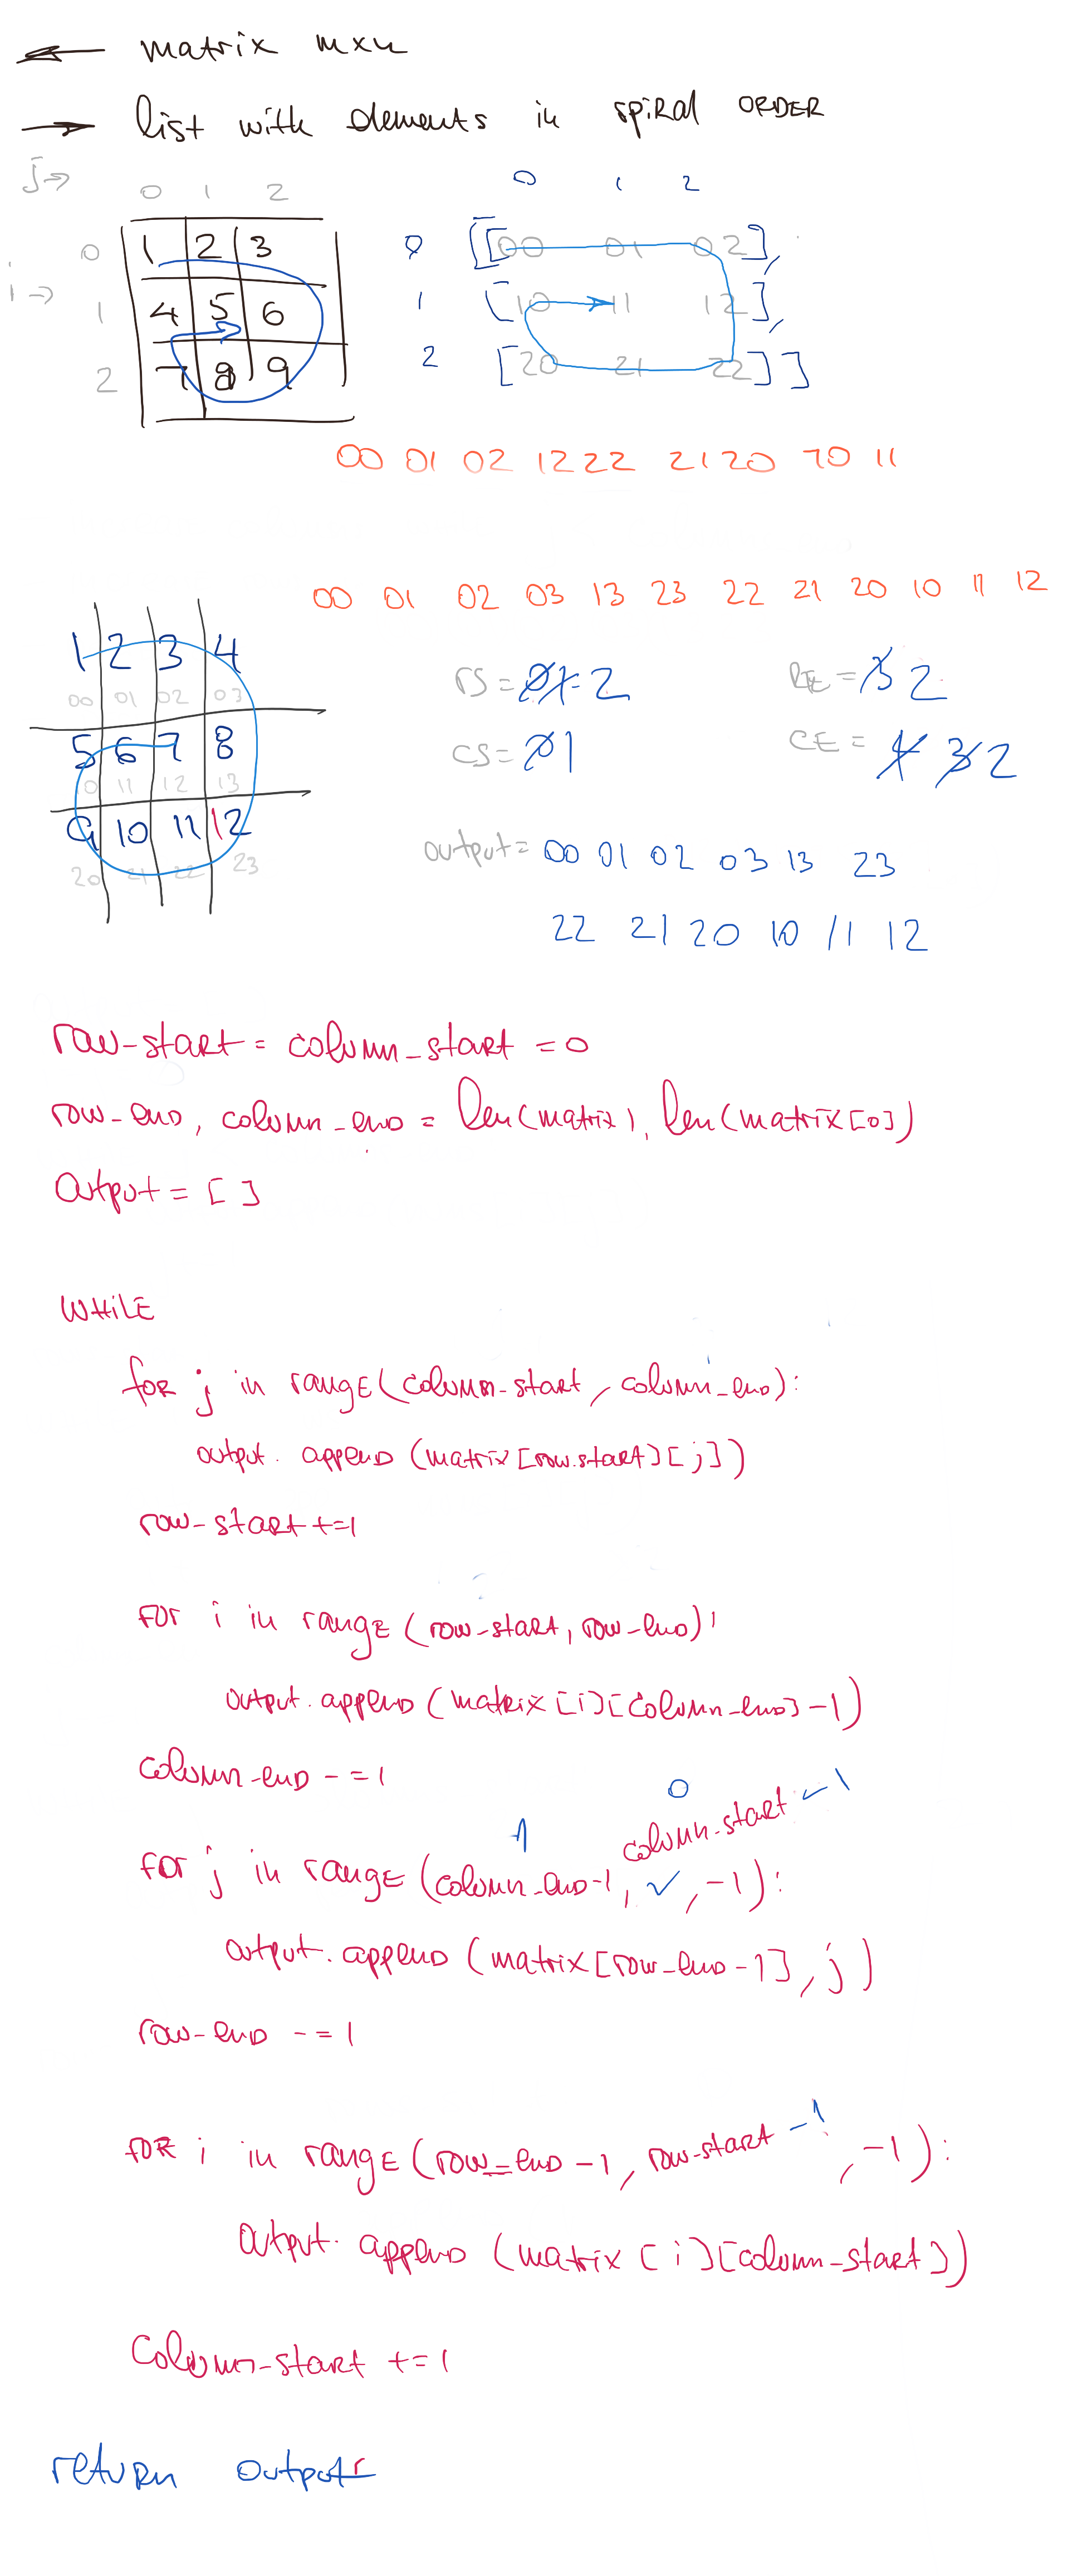 ← matrix mxn
→ list with elements in spiral ORDER
j→
0 1 2
0 1 2
i→
0 1 2 3
1 4 5 6
2 7 8 9
0 [[00 01 02],
1 [10 11 12],
2 [20 21 22]]
00 01 02 12 22 21 20 10 11
00 01 02 03 13 23 22 21 20 10 11 12
1 2 3 4
00 01 02 03
5 6 7 8
0 11 12 13
9 10 11 12
20 21 22 23
rS = 0 1 2
RE = 3 2
CS = 0 1
CE = 4 3 2
output = 00 01 02 03 13 23
22 21 20 10 11 12
row-start = column-start = 0
row-end, column-end = len(matrix), len(matrix[0])
output = []
WHILE
for j in range(column-start, column-end):
output.append(matrix[row.start][j])
row-start += 1
for i in range(row-start, row-end):
output.append(matrix[i][column-end]-1)
column-end -= 1
0
1 column-start - 1
for j in range(column-end-1, ✓, -1):
output.append(matrix[row-end-1], j)
row-end -= 1
for i in range(row-end-1, row-start -1, -1):
output.append(matrix[i][column-start])
Column-start += 1
return output